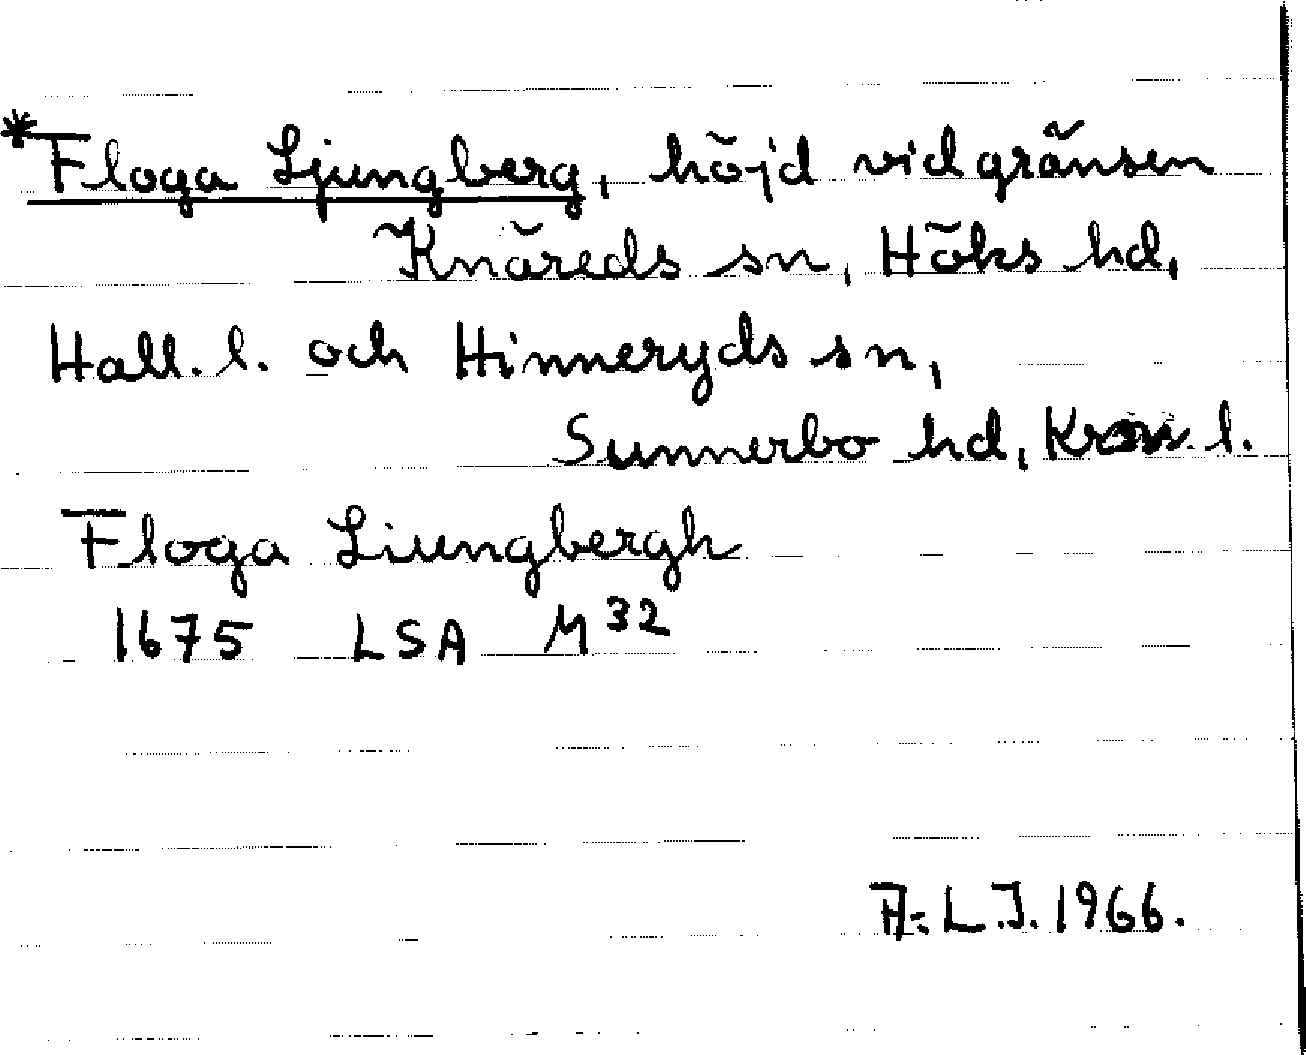 *Floga Ljungberg, höjd vid gränsen
Knäreds sn, Höks hd,
Hall. l. och Hinneryds sn,
Sunnerbo hd, Kron. l.
Floga Liungbergh
1675 LSA M32
A-L.J. 1966.